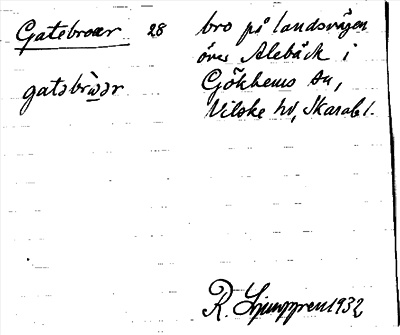 Gatebroar 28 bro på landsvägen
över Alebäck i
Gökhems sn,
gatəbrὼər Vilske hd, Skarabl.
R. Ljunggren 1932